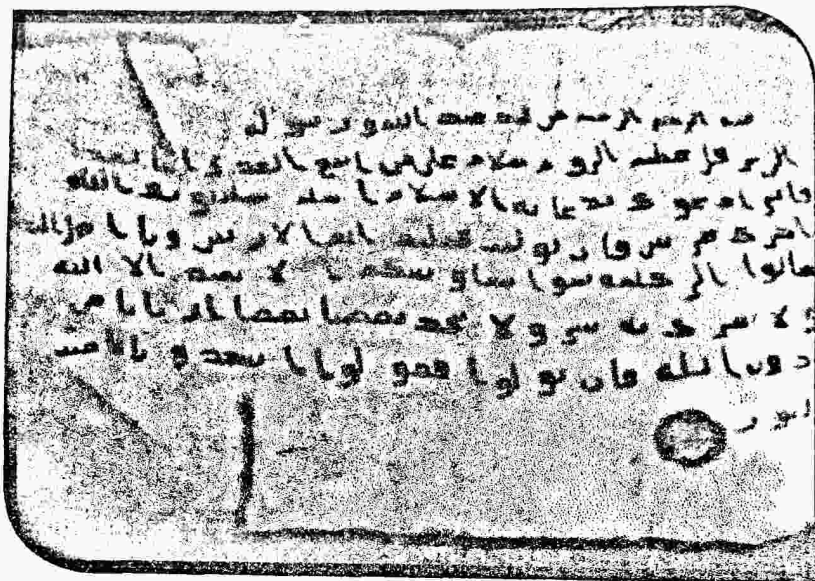 الله الرحمن الرحيم من محمد عبد الله ورسوله
الى هرقل عظيم الروم سلام على من اتبع الهدى اما بعد
فاني ادعوك بدعاية الاسلام اسلم تسلم يوتك الله
اجرك مرتين فان توليت فعليك اثم الاريسين ويا اهل
تعالوا الى كلمة سوا بيننا وبينكم الا نعبد الا الله
و لا نشرك به شيا و لا يتخذ بعضنا بعضا اربابا من
دون الله فان تولوا فقولوا اشهدوا بانا